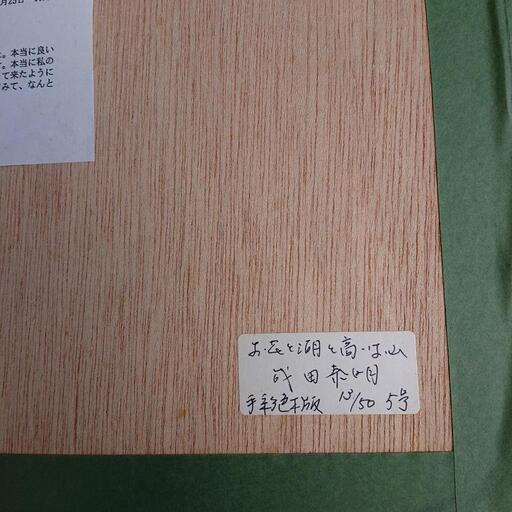 月25日
。本当に良い
。本当に私の
て来たように
みて、なんと
お花と湖と高い山
成田泰明
手彩色木版 13/50 5号